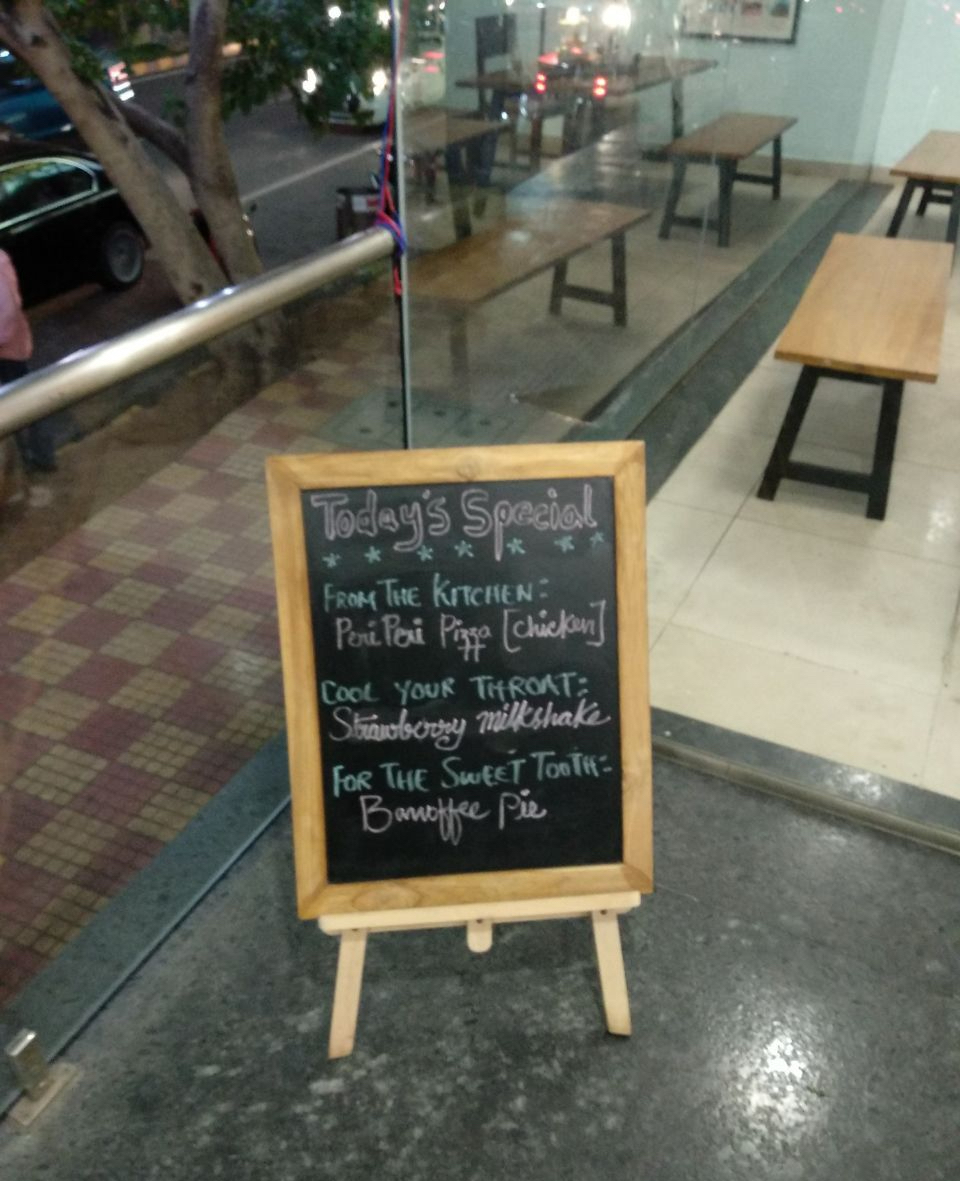 Today's Special
* * * * * * *
FROM THE KITCHEN:
Peri Peri Pizza [chicken]
COOL YOUR THROAT:
Strawberry milkshake
FOR THE SWEET TOOTH:-
Banoffee Pie